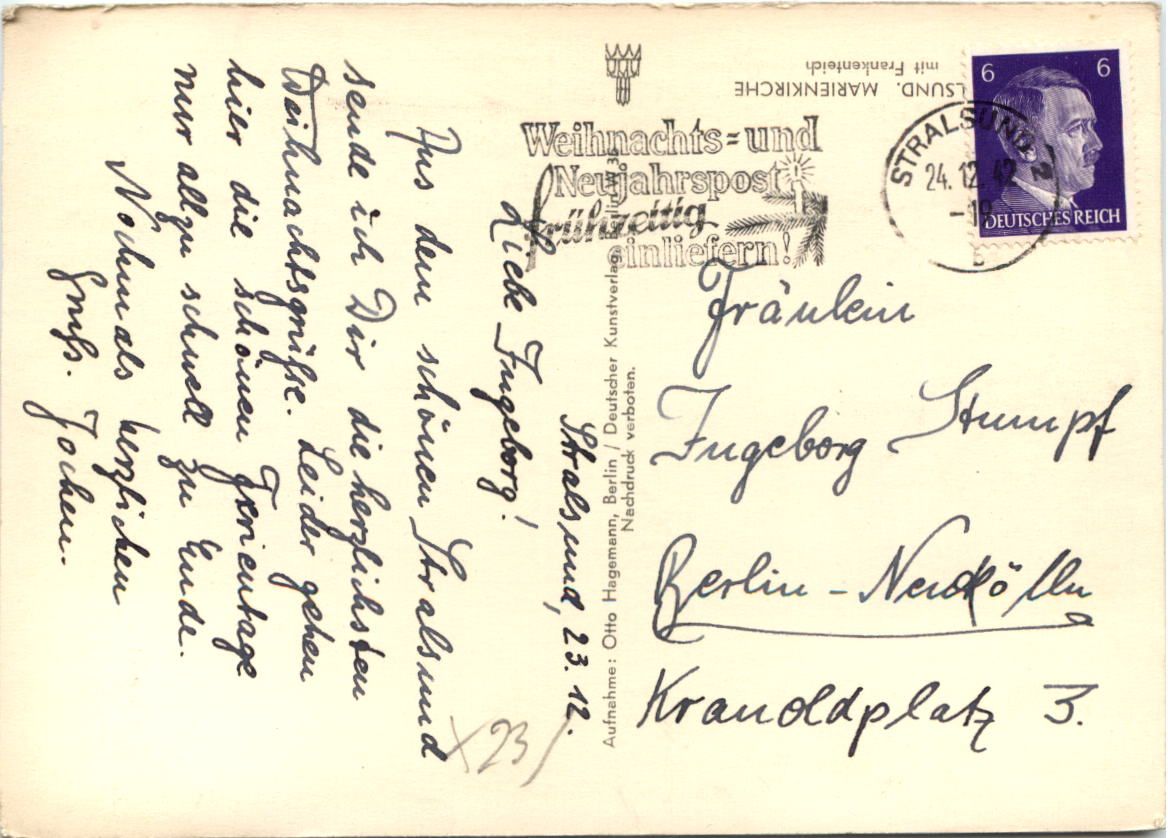 Stralsund, 23.12.
Liebe Ingeborg!
Aus dem schönen Stralsund
sende ich Dir die herzlichsten
Weihnachtsgrüße. Leider gehen
hier die schönen Ferientage
nur allzu schnell zu Ende.
Nochmals herzlichen
Gruß. Jochen.
X 23
Aufnahme: Otto Hagemann, Berlin / Deutscher Kunstverlag, Berlin W 35
Nachdruck verboten.
LSUND. MARIENKIRCHE
mit Frankenteich
Weihnachts=und
Neujahrspost
frühzeitig
einliefern!
STRALSUND 2
24.12.42
-19
b
6 6
DEUTSCHES REICH
Fräulein
Ingeborg Stumpf
Berlin - Neukölln
Kranoldplatz 3.